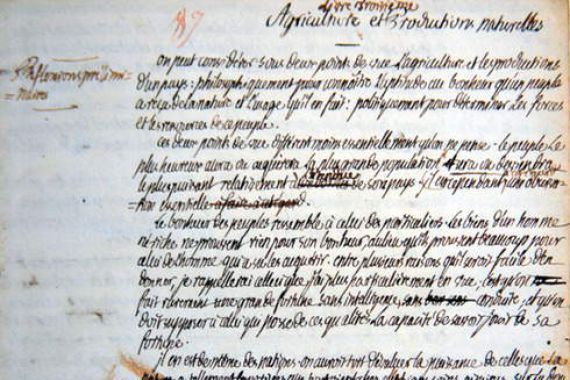 87
Livre troisieme
Agriculture et Productions naturelles
Réflexions préliminaires
on peut considérer sous deux points de vue L'agriculture et les productions
D'un pays: philosophiquement pour connoître L'aptitude au bonheur qu'un peuple
a reçu de la nature et L'usage qu'il en fait: politiquement pour déterminer Les forces
et les ressources de ce peuple.
ces deux points de vue different moins essentiellement qu'on ne pense. le peuple Le
plus heureux aura ou acquerera La plus grande population et sera
le plus puissant relativement à de son pays. il y a cependant une observa-
tion essentielle à faire à cet égard.
Le bonheur des peuples ressemble à celui des particuliers. Les biens d'un homme
né riche ne prouvent rien pour son bonheur, au lieu qu'ils prouvent beaucoup pour
celui de L'homme qui a sçu les acquérir. entre plusieurs raisons qu'il seroit facile d'en
donner, je rappellerai celle que j'ai plus particulierement en vue, c'est qu'on ne
fait rarement une grande fortune sans intelligence, sans conduite, et qu'on
doit supposer à celui qui possede ces qualités La capacité de savoir jouir de sa
fortune.
il en est de même des nations. on auroit tort d'évaluer la puissance de celles que La